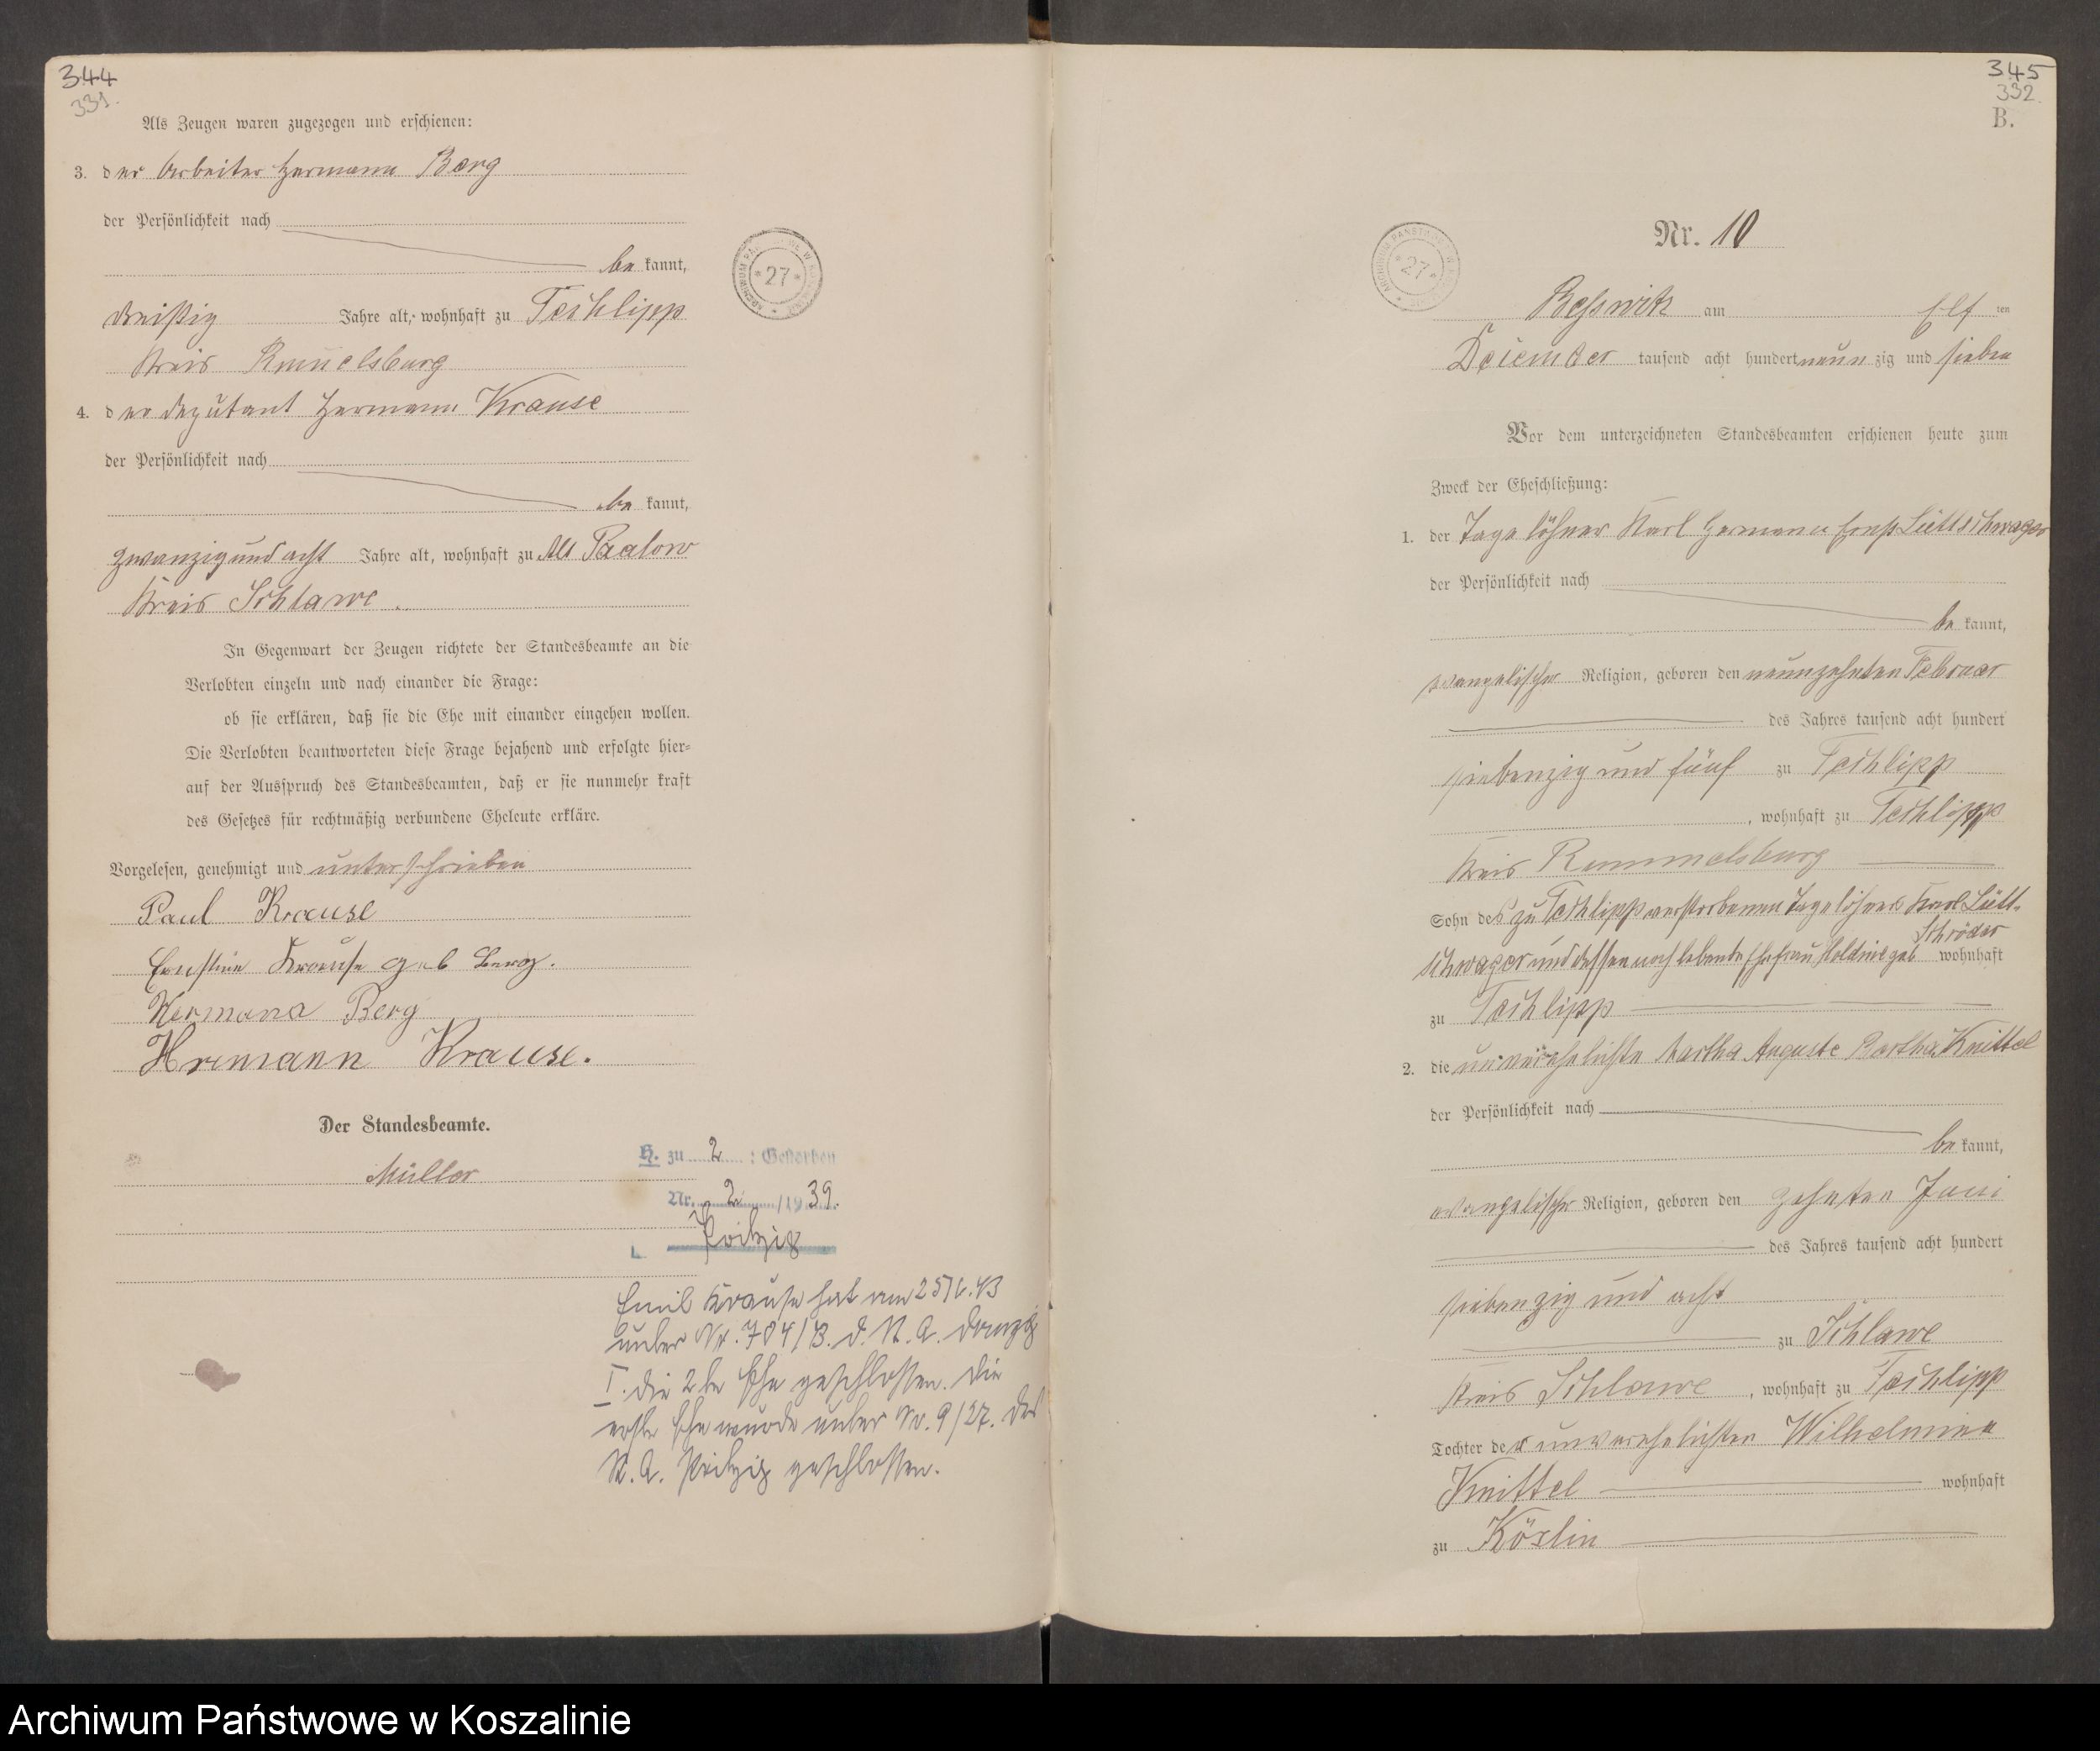 344
331.
Als Zeugen waren zugezogen und erschienen:
3. der Arbeiter Hermann Berg
der Persönlichkeit nach
be kannt,
dreißig Jahre alt, wohnhaft zu Techlipp
Kreis Rummelsburg
4. der Deputant Hermann Krause
der Persönlichkeit nach
be kannt,
zwanzig und acht Jahre alt, wohnhaft zu Alt Paalow
Kreis Schlawe.
In Gegenwart der Zeugen richtete der Standesbeamte an die
Verlobten einzeln und nach einander die Frage:
ob sie erklären, daß sie die Ehe mit einander eingehen wollen.
Die Verlobten beantworteten diese Frage bejahend und erfolgte hier-
auf der Ausspruch des Standesbeamten, daß er sie nunmehr kraft
des Gesetzes für rechtmäßig verbundene Eheleute erkläre.
Vorgelesen, genehmigt und unterschrieben
Paul Krause
Ernstine Krause geb Berg.
Hermann Berg
Hremann Krause.
Der Standesbeamte.
Müller
H. zu 2 : Gestorben
Nr. 2 /19 39.
Pritzig
Emil Krause hat am
unter Nr. 784/ d. St. A. Danzig
I. die 2te Ehe geschlossen. Die
erste Ehe wurde unter Nr. 9/27. des
St. A. Pritzig geschlossen.
ARCHIWUM PAŃSTWOWE W
*27*
345
332.
B.
ARCHIWUM PAŃSTWOWE W
*27*
Nr. 10
Beßwitz am Elf ten
Dezember tausend acht hundert neun zig und sieben
Vor dem unterzeichneten Standesbeamten erschienen heute zum
Zweck der Eheschließung:
1. der Tagelöhner Karl Hermann Ernst Lüttschwager
der Persönlichkeit nach
be kannt,
evangelischer Religion, geboren den neunzehnten Februar
des Jahres tausend acht hundert
siebenzig und fünf zu Techlipp
, wohnhaft zu Techlipp
Kreis Rummelsburg
Sohn des zu Techlipp verstorbenen Tagelöhners Karl Lütt-
Schröder
schwager und dessen noch lebende Ehefrau geb wohnhaft
zu Techlipp
2. die unverehelichte Martha Auguste Bertha Knittel
der Persönlichkeit nach
be kannt,
evangelischer Religion, geboren den zehnten Juni
des Jahres tausend acht hundert
siebenzig und acht
zu Schlawe
Kreis Schlawe, wohnhaft zu Techlipp
Tochter der unverehelichten Wilhelmine
Knittel wohnhaft
zu Köslin
Archiwum Państwowe w Koszalinie